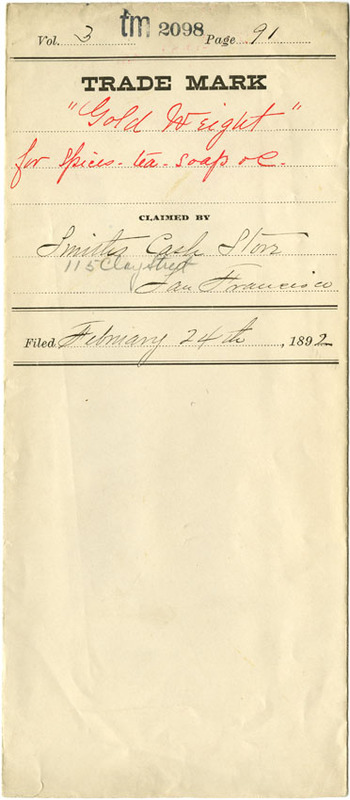 Vol. 3 tm 2098 Page 91
TRADE MARK
"Gold Weight"
for Spices - tea - soap &c.
CLAIMED BY
Smiths Cash Store
115 Clay street
San Francisco
Filed February 24th, 1892